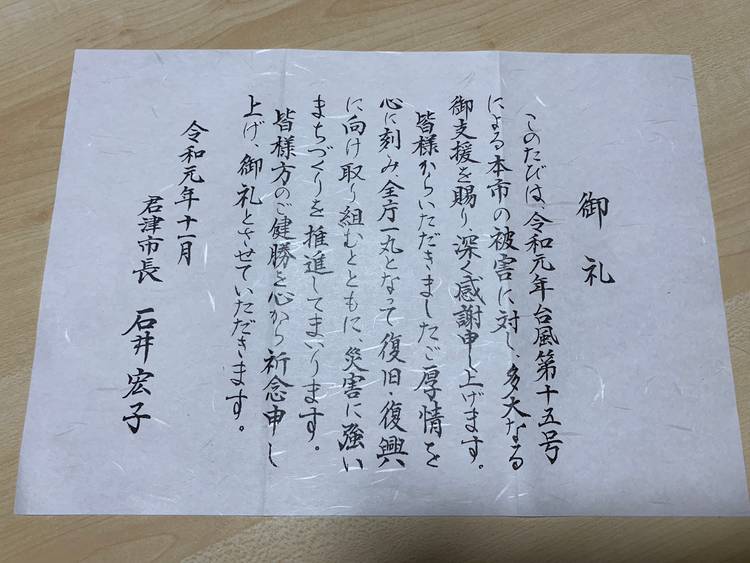 御礼
このたびは、令和元年台風第十五号
による本市の被害に対し、多大なる
御支援を賜り、深く感謝申し上げます。
皆様からいただきましたご厚情を
心に刻み、全庁一丸となって復旧・復興
に向け取り組むとともに、災害に強い
まちづくりを推進してまいります。
皆様方のご健勝を心から祈念申し
上げ、御礼とさせていただきます。
令和元年十一月
君津市長 石井宏子